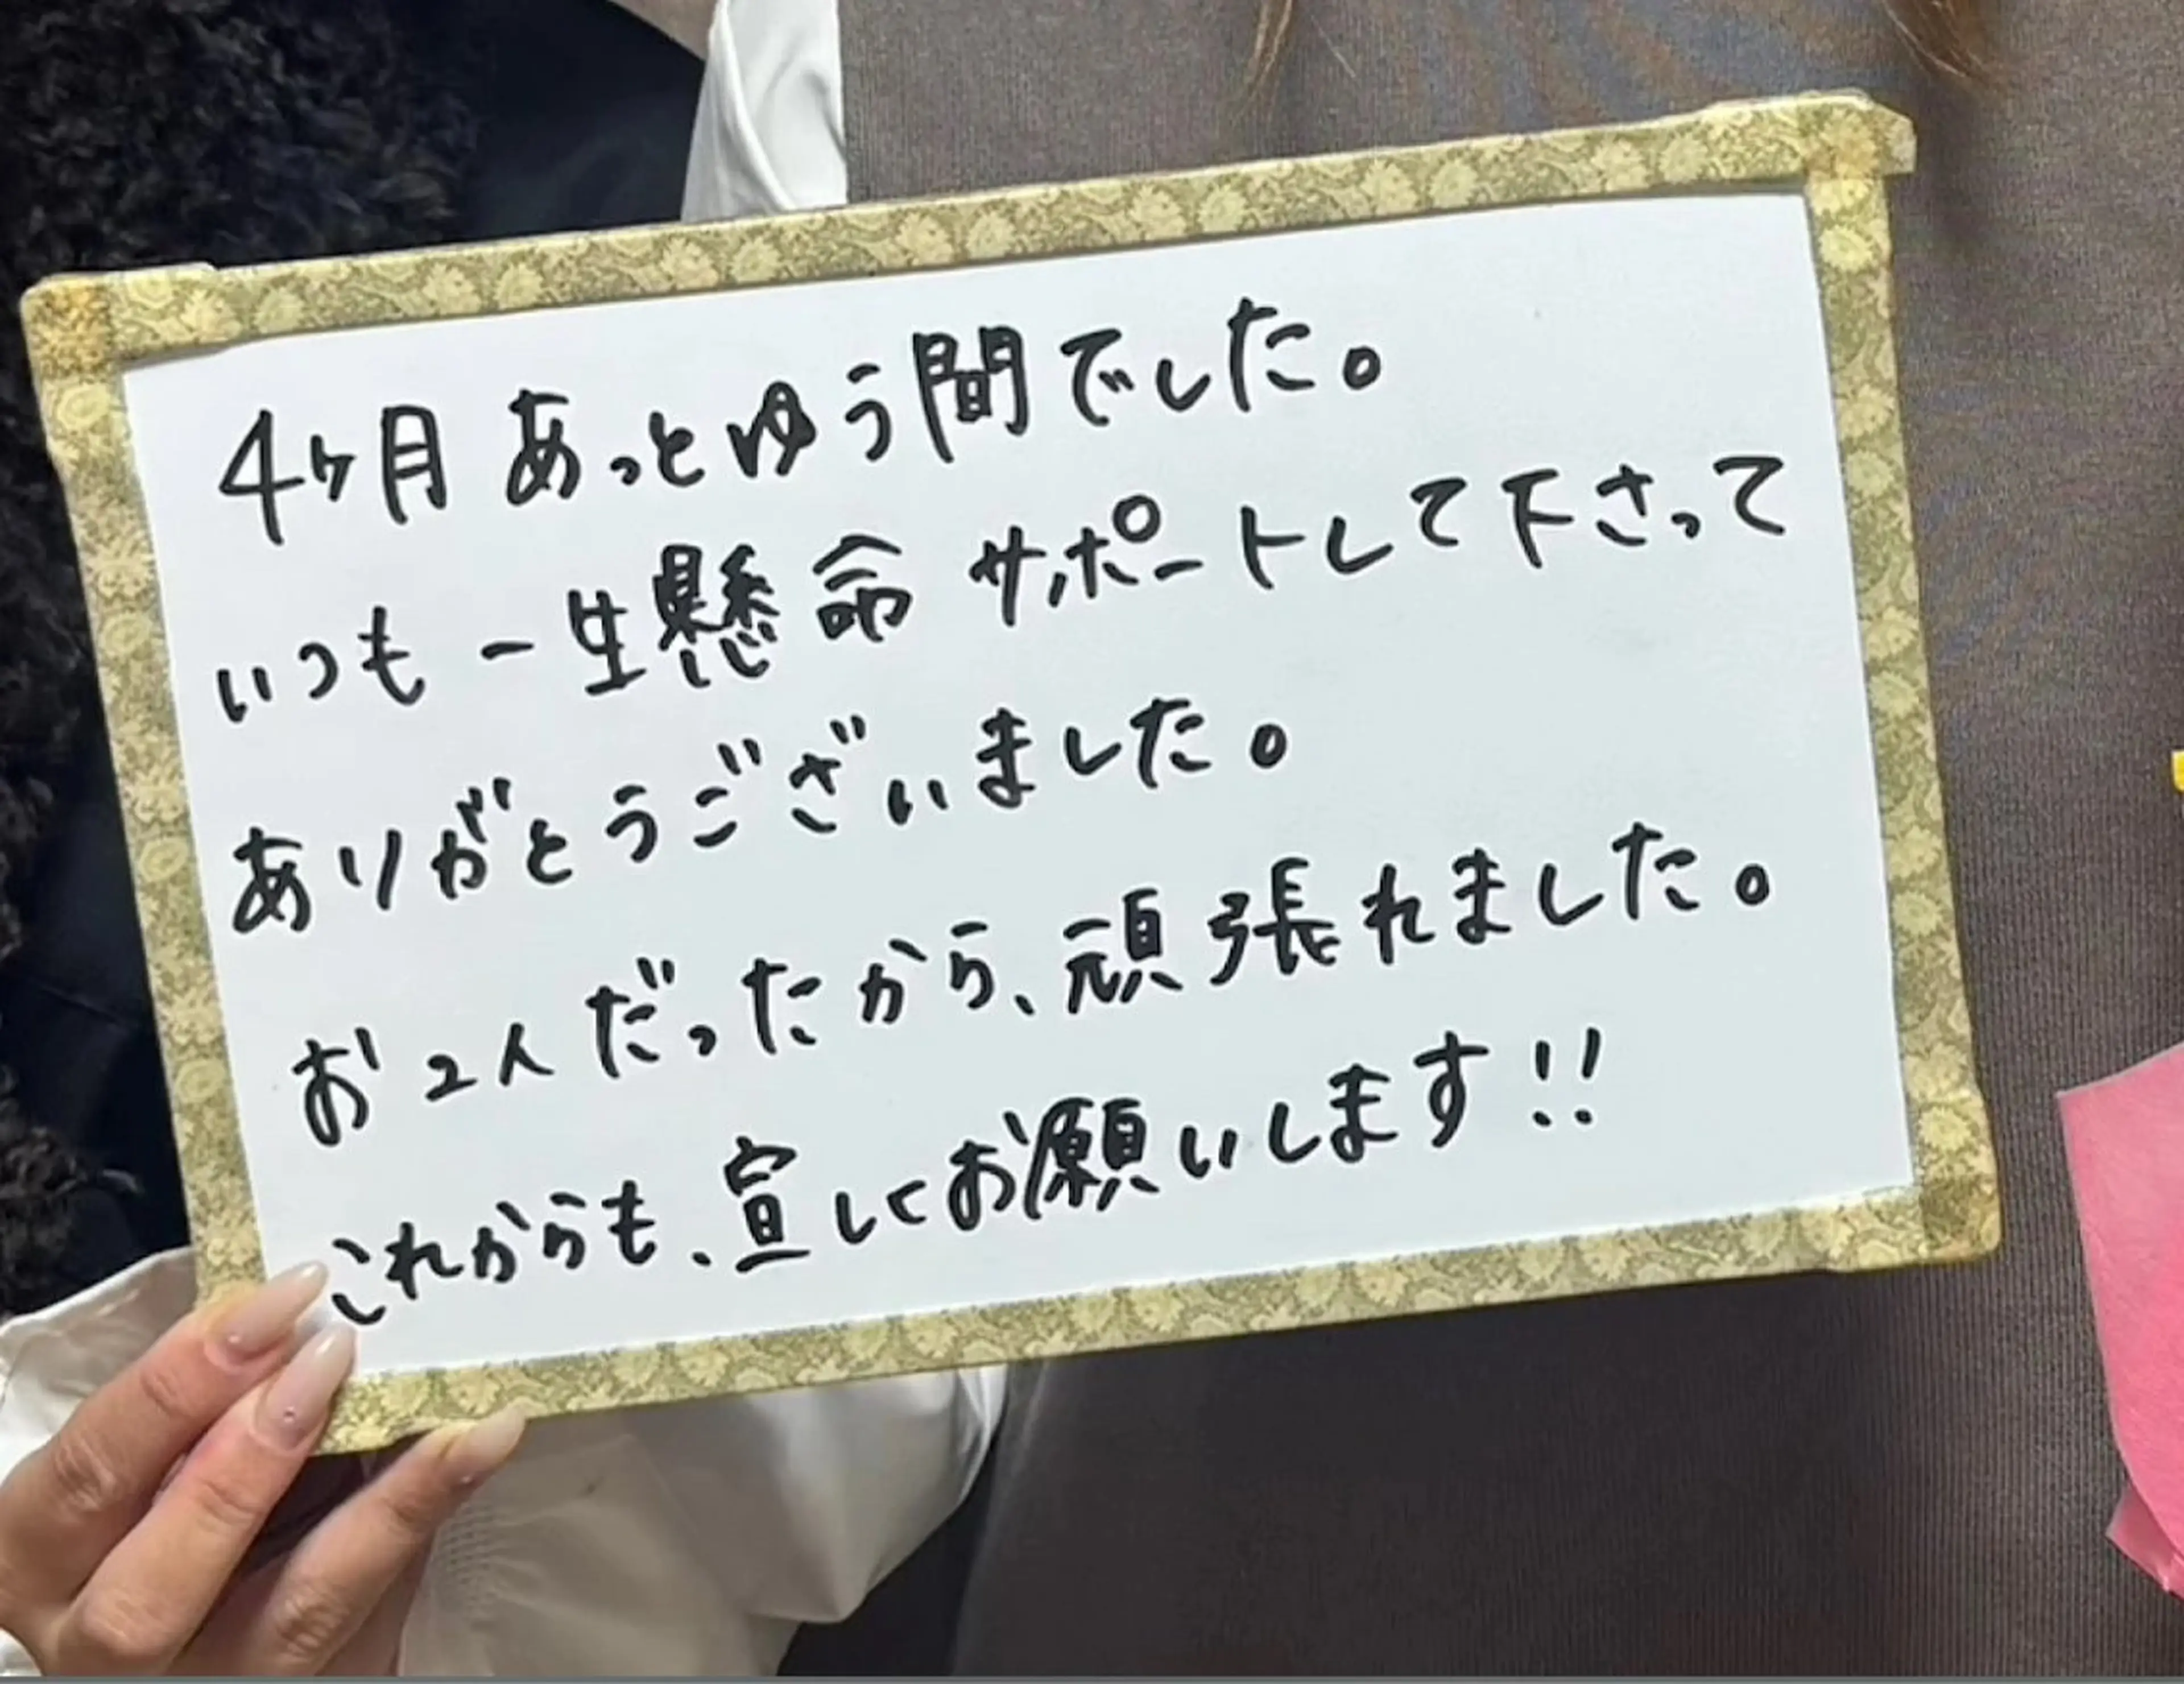 4ヶ月 あっとゆう間でした。
いつも一生懸命サポートして下さって
ありがとうございました。
お2人だったから、頑張れました。
これからも、宜しくお願いします!!